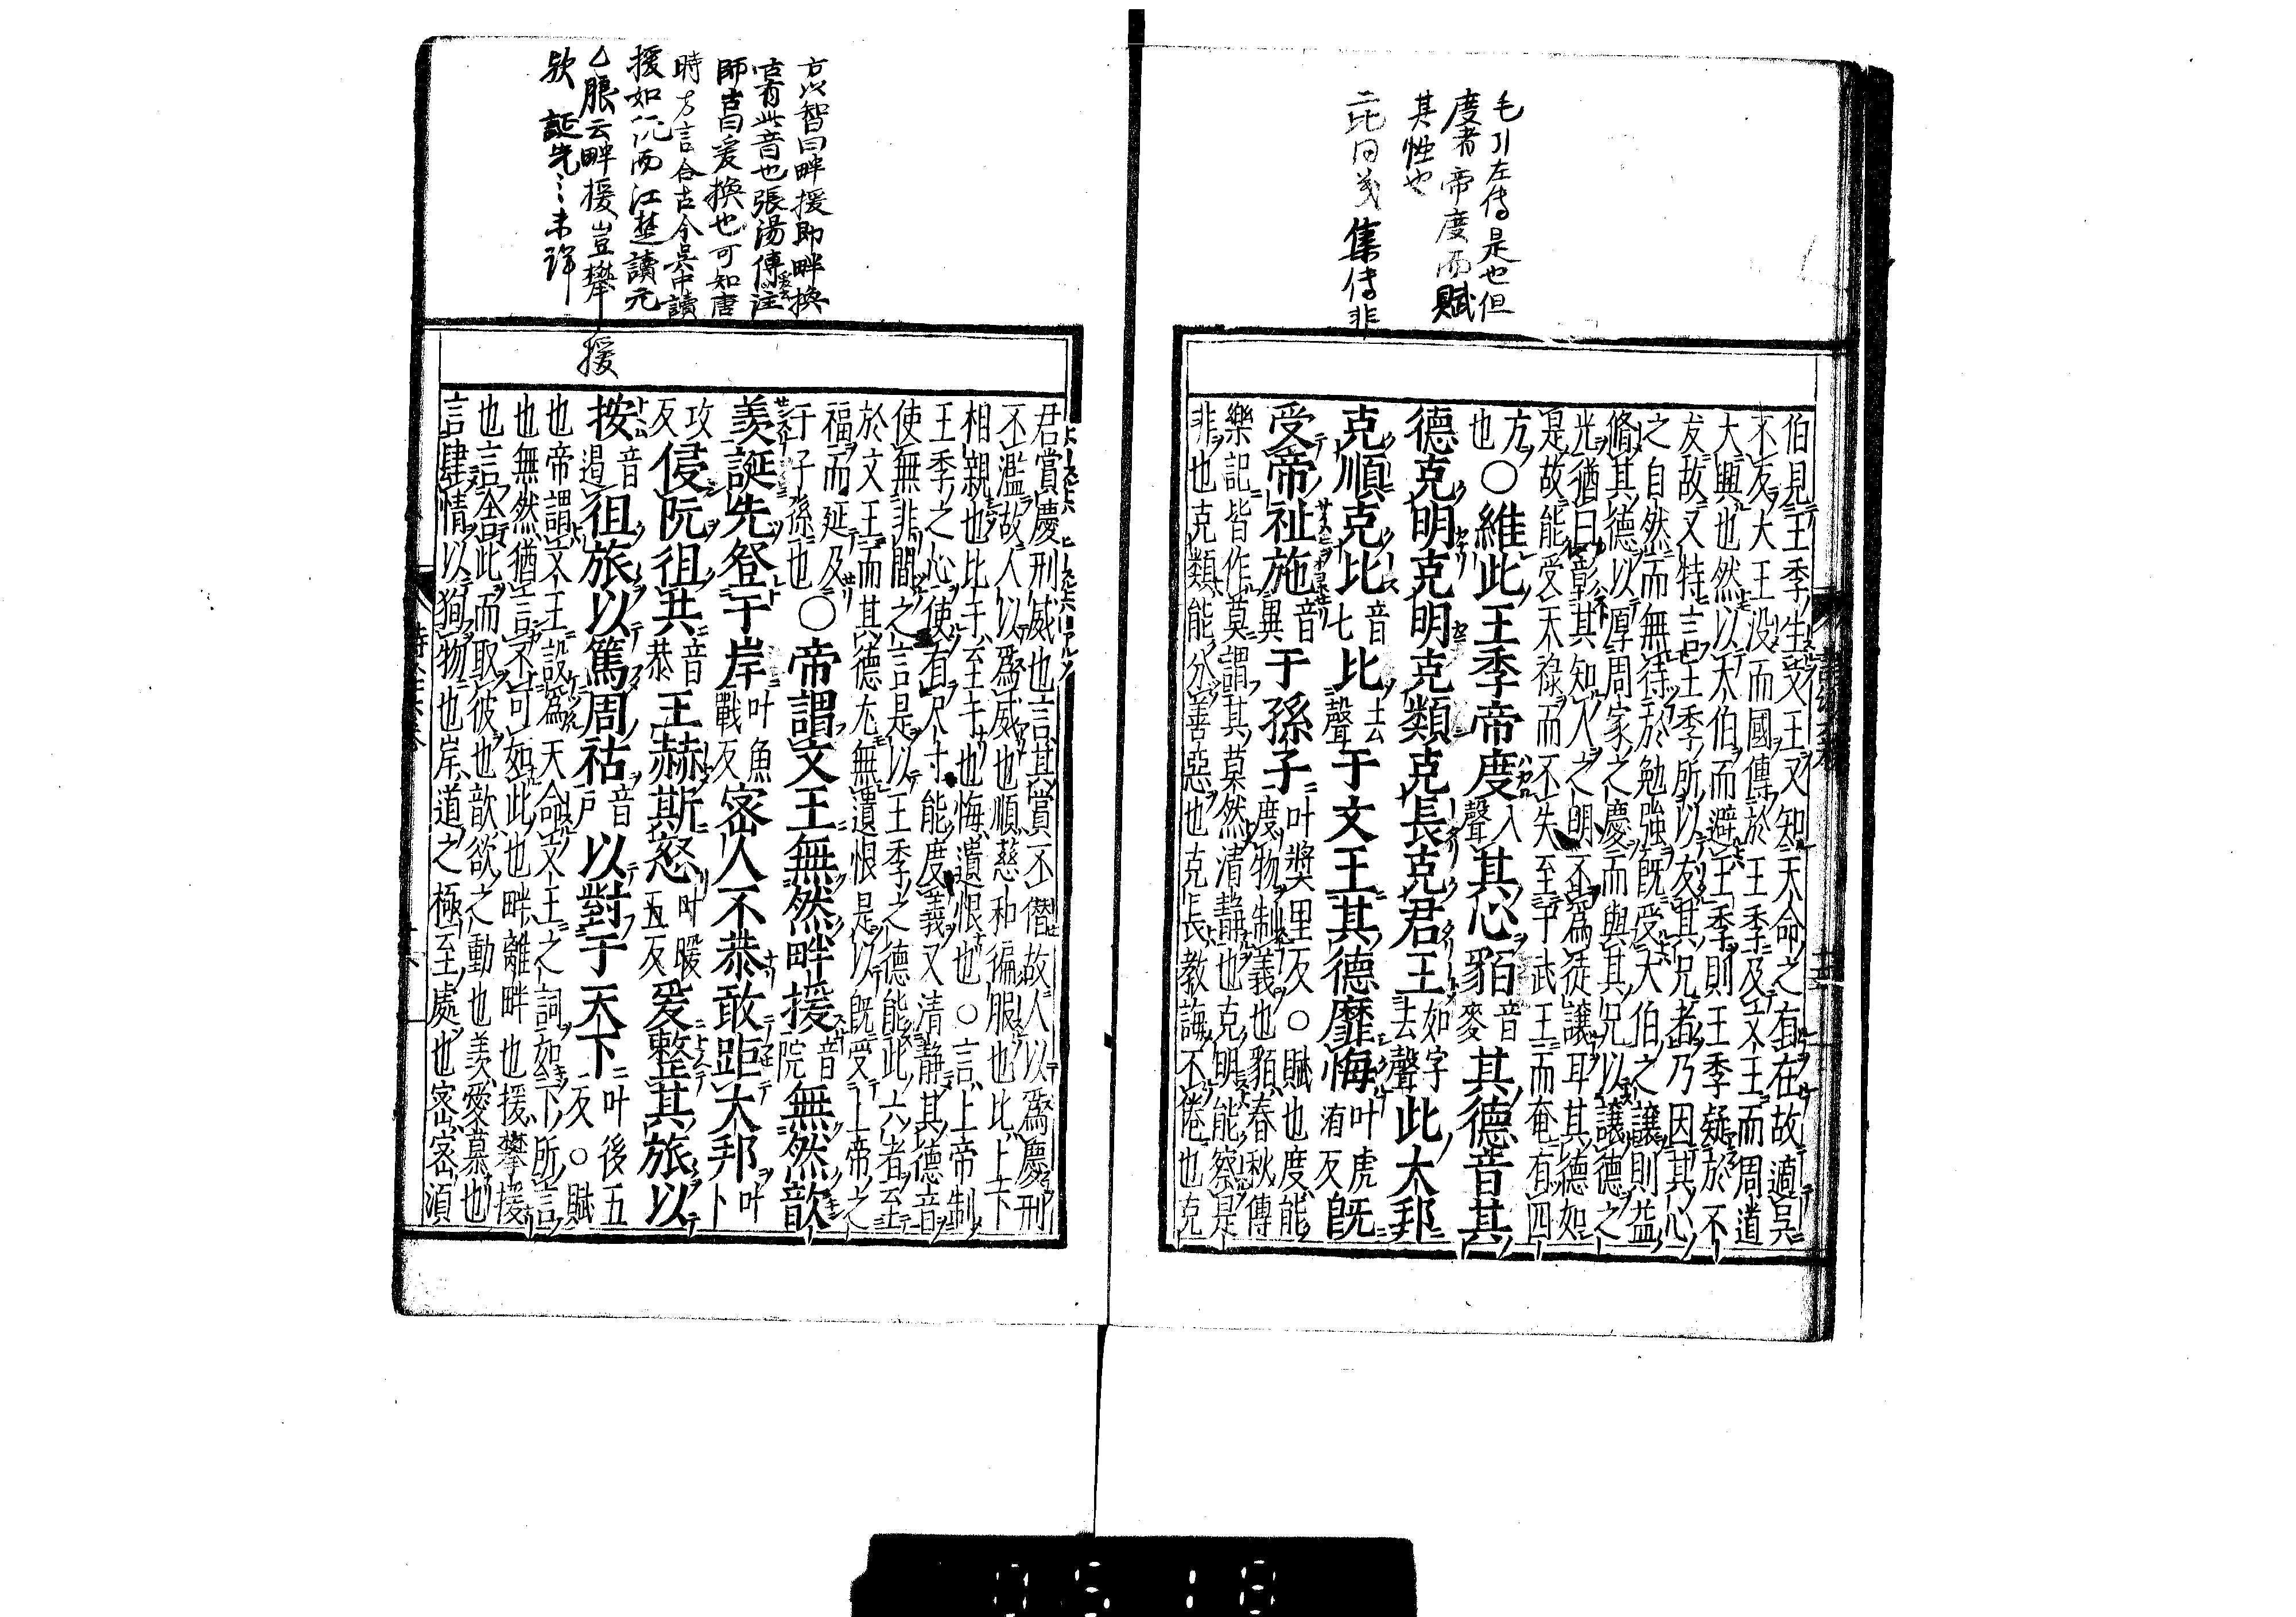 毛引左傳是也但
度者帝度而賦
其性也
二比同義 集傳非
伯見王季生文王又知天命之有在故適吳
不反大王没而國傳於王季及文王而周道
大興也然以太伯而避王季則王季疑於不
友故又特言王季所以友其兄者乃因其心
之自然而無待於勉強既受大伯之讓則益
脩其德以厚周家之慶而與其兄以讓德之
光猶曰彰其知人之明不為徒讓耳其德如
是故能受天禄而不失至于武王而奄有四
方也○維此王季帝度入聲其心貊音麥其德音其
德克明克明克類克長克君王如字去聲此大邦
克順克比音七比去聲于文王其德靡悔叶虎洧反既
受帝祉施音異于孫子叶奬里反○賦也度能度物制義也貊春秋傳
樂記皆作莫謂其莫然清靜也克明能察是
非也克類能分善惡也克長教誨不倦也克
君賞慶刑威也言其賞不僭故人以為慶刑
不濫故人以為威也順慈和徧服也比上下
相親也比于至于也悔遺恨也○言上帝制
王季之心使有尺寸能度義又清靜其德音
使無非間之言是以王季之德能此六者至
於文王而其德尤無遺恨是以既受上帝之
福而延及于子孫也○帝謂文王無然畔援音院無然歆
羨誕先登于岸叶魚戰反密人不恭敢距大邦叶卜
攻反侵阮徂共音恭王赫斯怒叶暖五反爰整其旅以
按音遏徂旅以篤周祜音戶以對于天下叶後五反○賦
也帝謂文王設為天命文王之詞如下所言
也無然猶言不可如此也畔離畔也援攀援
也言舍此而取彼也歆欲之動也羨愛慕也
言肆情以狥物也岸道之極至處也密密湏
方以智曰畔援即畔換
古有此音也張湯傳爰書注
師古曰爰換也可知唐
時方言合古今吳中讀
援如阮而江楚讀元
△朖云畔援豈攀援
欤 誕先之未詳